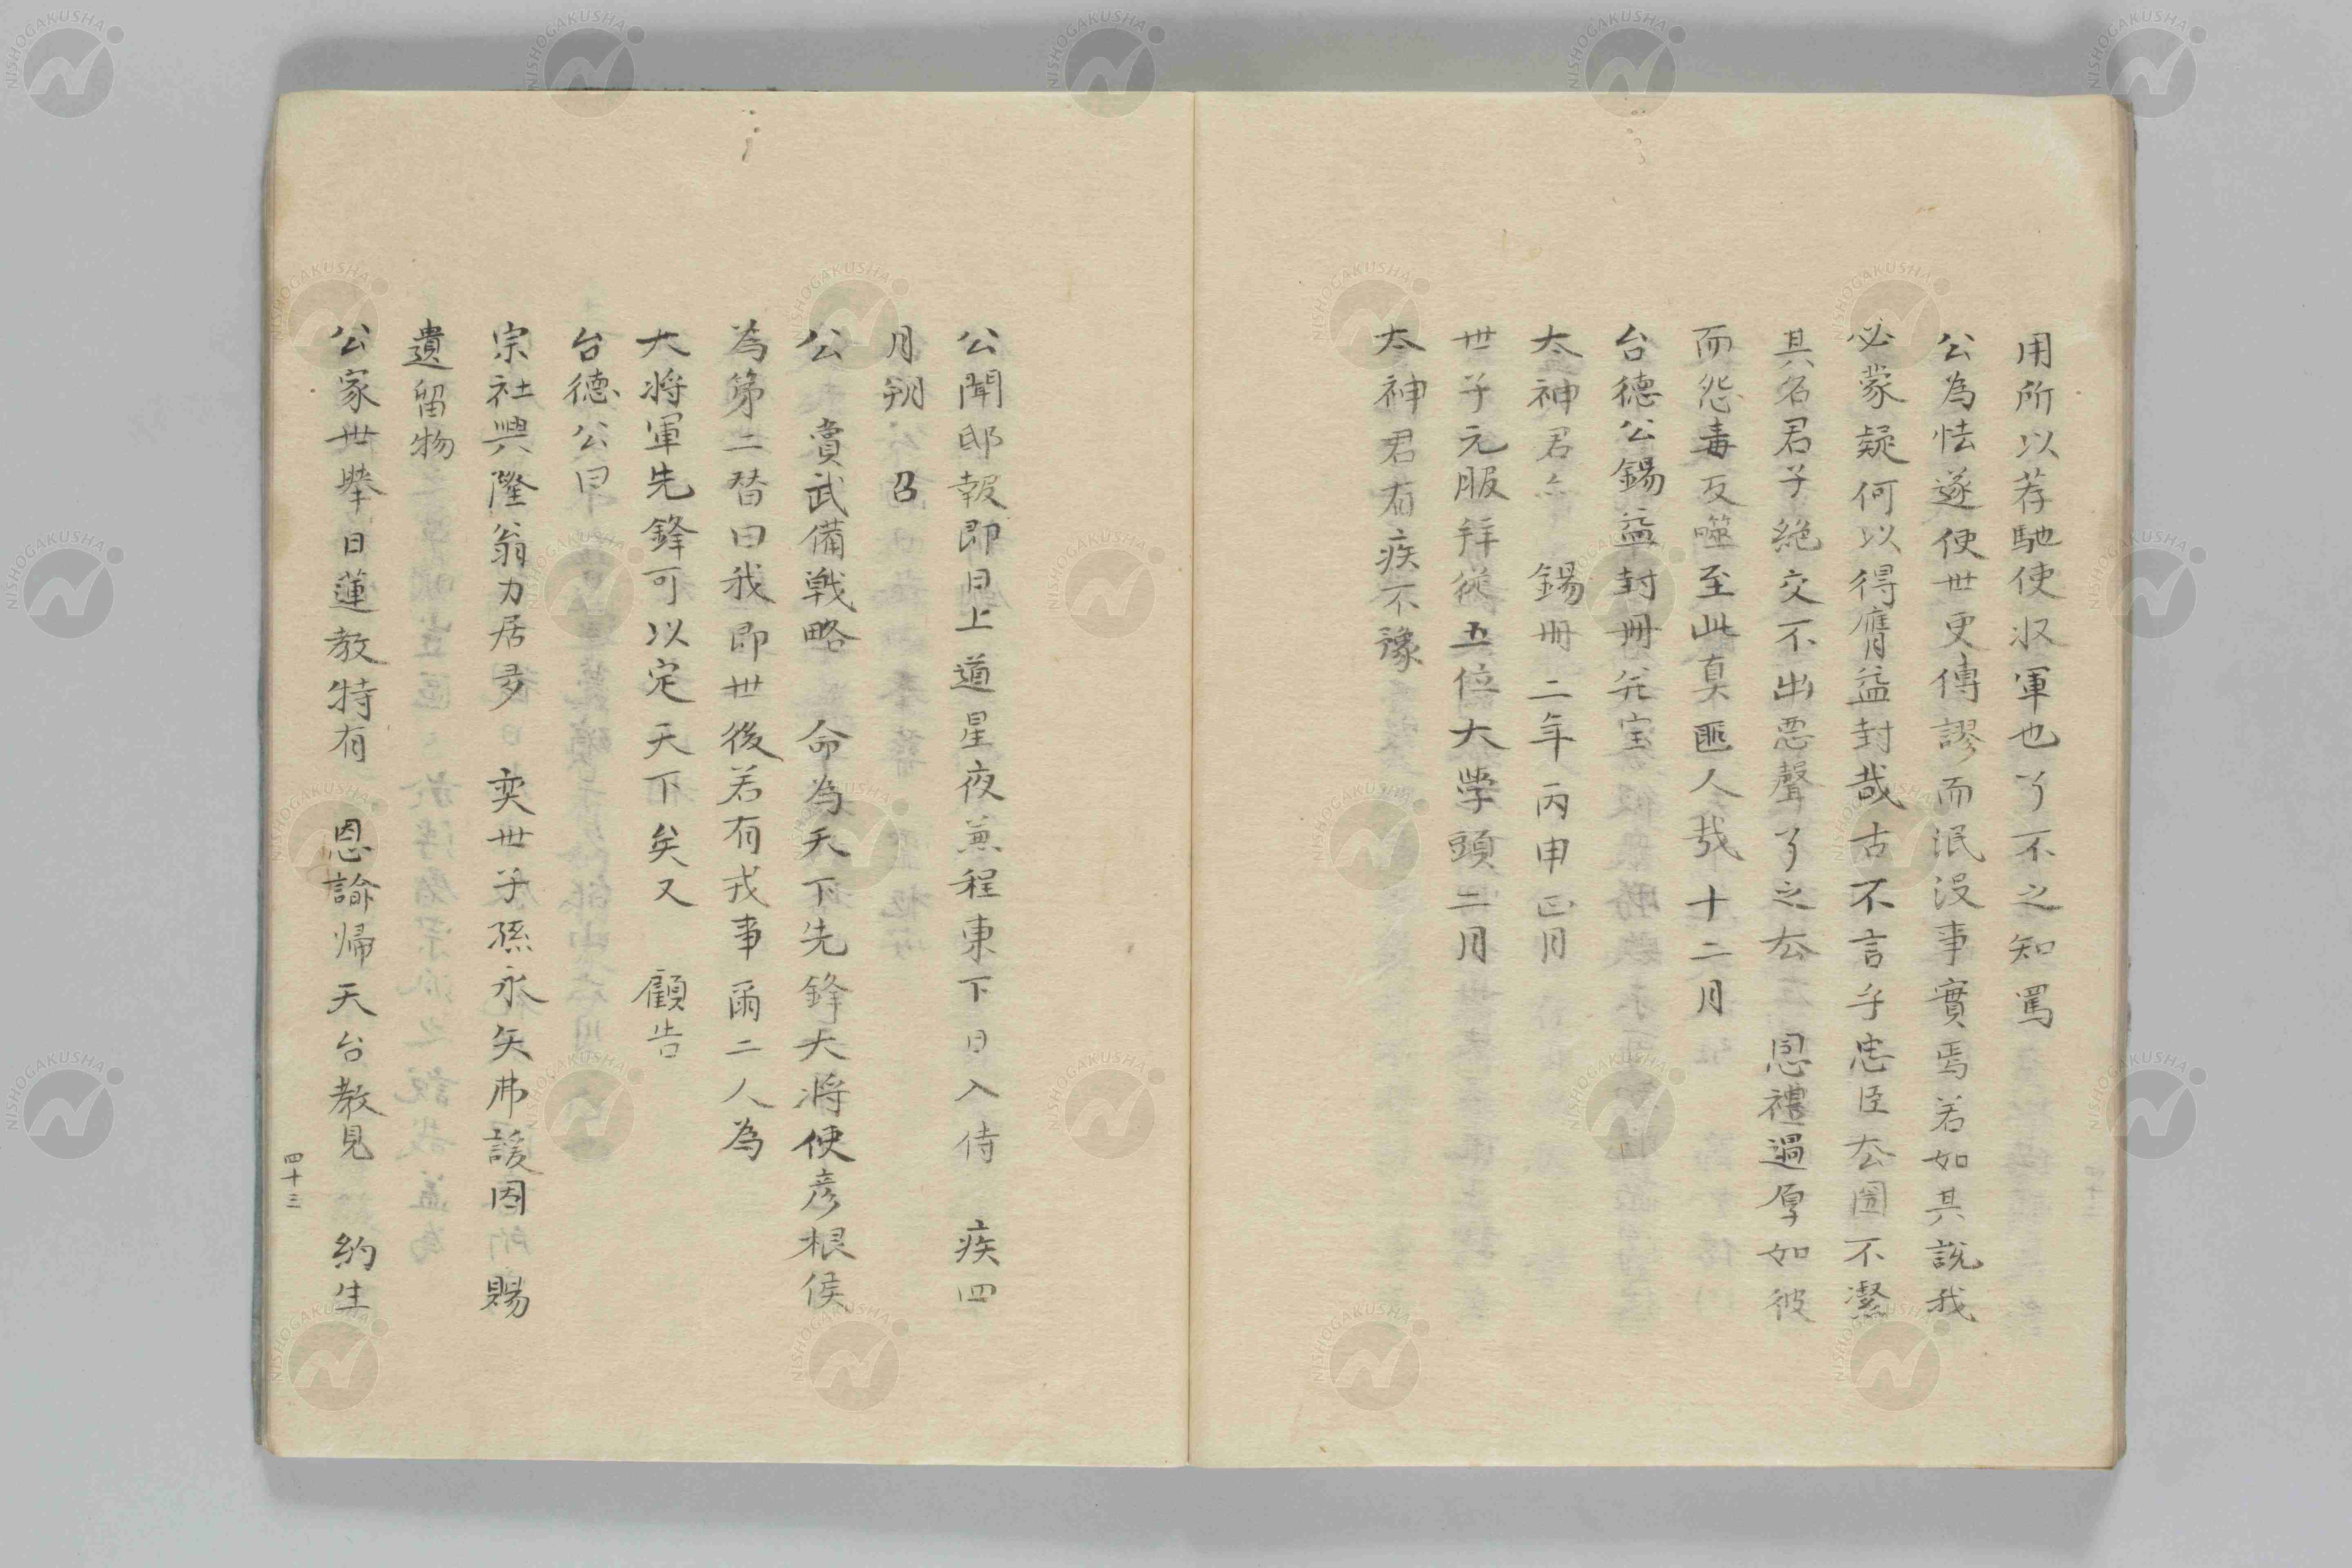 用所以荐馳使収軍也了不之知罵
公為怯遂使世更傳謬而泯没事實焉若如其説我
必蒙疑何以得膺益封哉古不言乎忠臣厺國不潔
其名君子絶交不出惡聲了之厺 恩禮過厚如彼
而怨毒反噬至此真匪人哉十二月
台德公錫益封冊
太神君 錫冊二年丙申正月
世子元服拜從五位大學頭二月
太神君有疾不豫
公聞邸報即日上道星夜兼程東下日入侍 疾四
月朔 召
公 賞武備戰略 命為天下先鋒大將使彦根侯
為第二替曰我即世後若有戎事爾二人為
大將軍先鋒可以定天下矣又 顧告
台德公曰
宗社興隆翁力居多 奕世子孫永矢弗諼因所賜
遺留物
公家世舉日蓮教特有 恩諭帰天台教見 約生
四十三
NISHOGAKUSHA